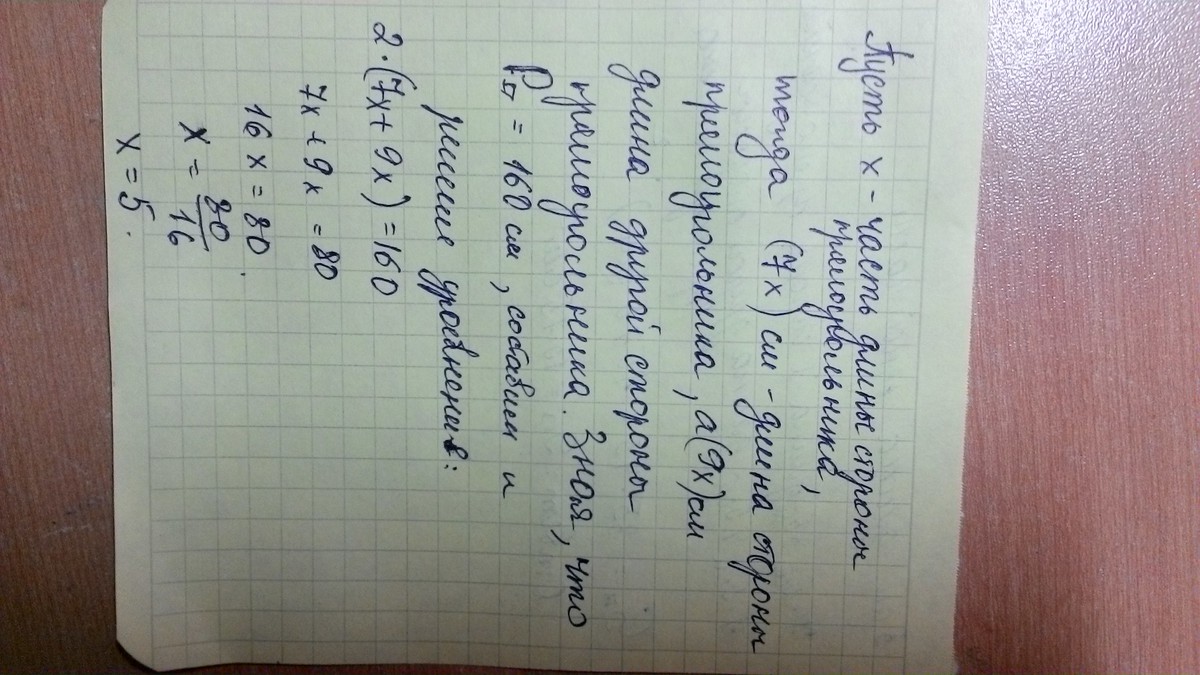 Пусть x - часть длины стороны
прямоугольника,
тогда (7x) см - длина стороны
прямоугольника, а (9x) см
длина другой стороны
прямоугольника. Зная, что
P▭ = 160 см, составим и
решим уровнение:
2·(7x + 9x) = 160
7x + 9x = 80
16x = 80
x = 80/16
x = 5.